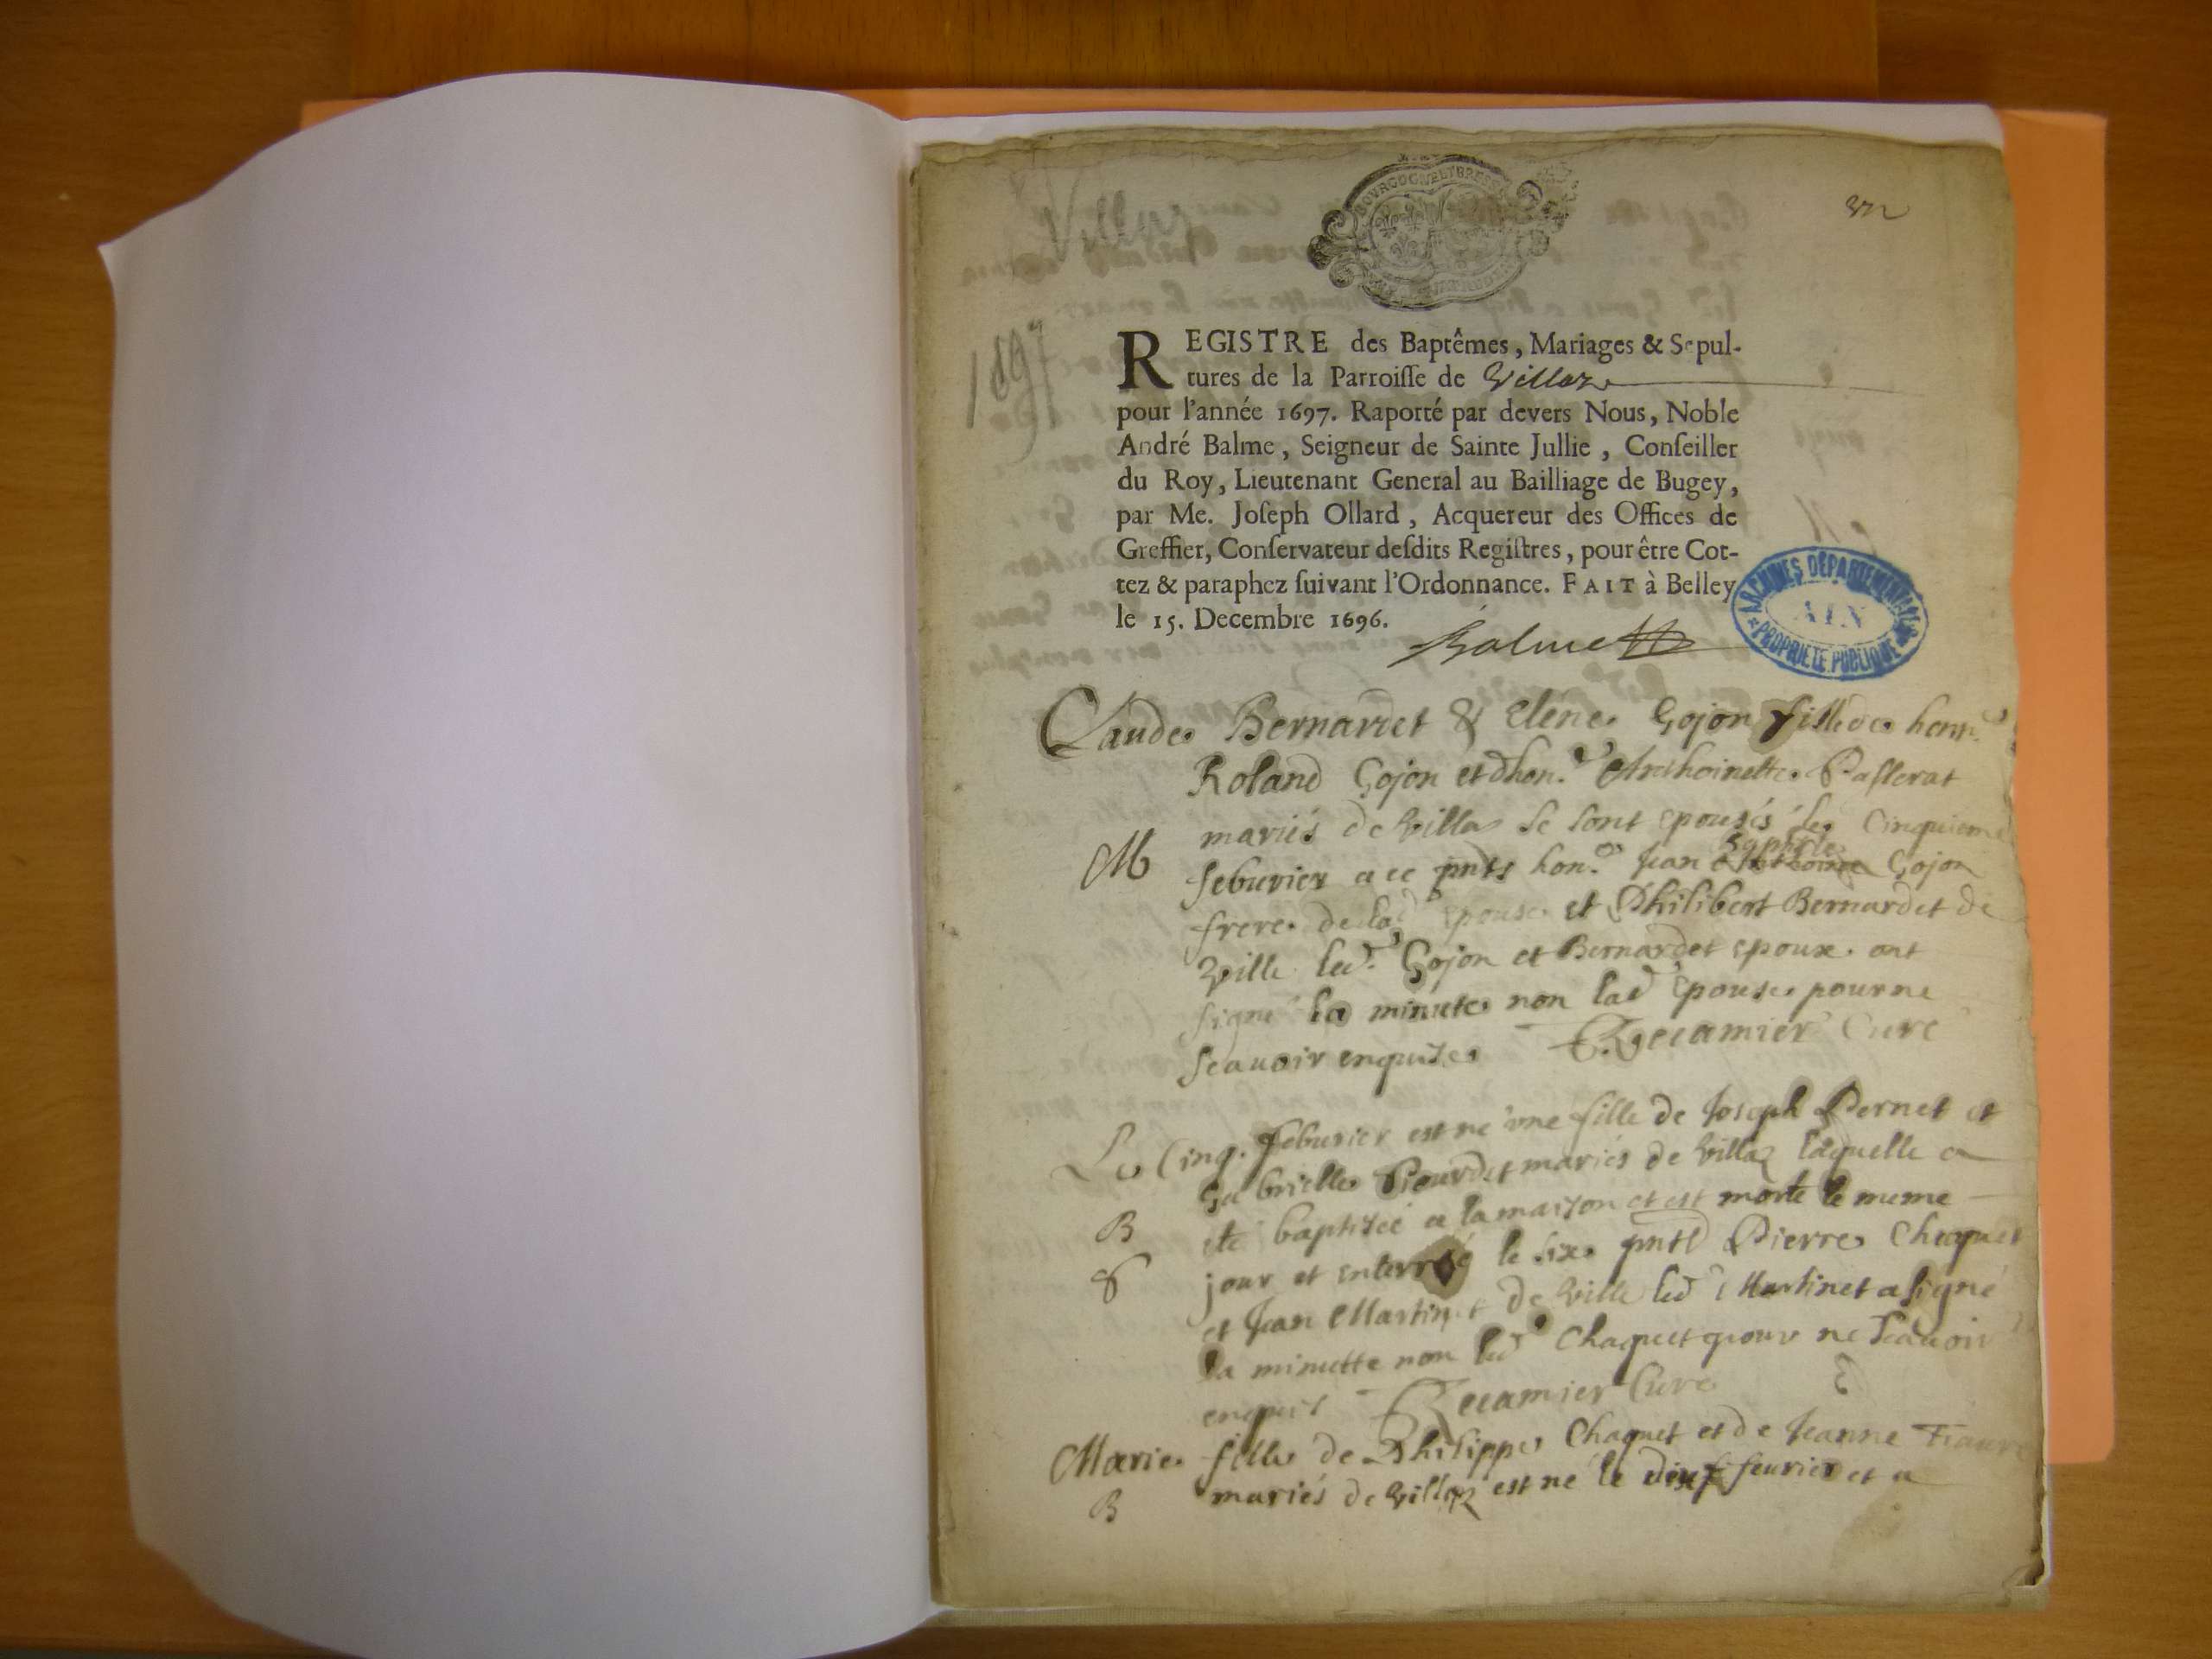 Villaz
1697
BOURGOGNE ET BRESSE
REGISTRE des Baptêmes, Mariages & Sepul-
tures de la Parroisse de Villaz
pour l'année 1697. Raporté par devers Nous, Noble
André Balme, Seigneur de Sainte Jullie, Conseiller
du Roy, Lieutenant General au Bailliage de Bugey,
par Me. Joseph Ollard, Acquereur des Offices de
Greffier, Conservateur desdits Registres, pour être Cot-
tez & paraphez suivant l'Ordonnance. FAIT à Belley
le 15. Decembre 1696.
Balme
ARCHIVES DÉPARTEMENTALES
AIN
PROPRIÉTÉ PUBLIQUE
Claude Bernardet & Elene Gojon fille de hon.
Roland Gojon et dhon. Anthoinette Passerat
mariés de Villaz se sont epousés le Cinquieme
M
feburier a ce pnts hon. Jean Baptiste Gojon
frere de lad epouse et Philibert Bernardet de
Ville led. Gojon et Bernardet epoux ont
signé la minute non lad epouse pour ne
scauoir enquise Recamier Curé
Le Cinq. feburier est né une fille de Joseph Pernet et
Gabrielle mariés de Villaz laquelle a
B
eté baptisée a la maison et est morte le meme
S
jour et enterré le six pnts Pierre Chaquet
et Jean Martinet de Ville led Martinet a signé
la minutte non led Chaquet pour ne scauoir
enquis Recamier Curé
Marie fille de Philippe Chaquet et de Jeanne
B
mariés de Villaz est né le feurier et a